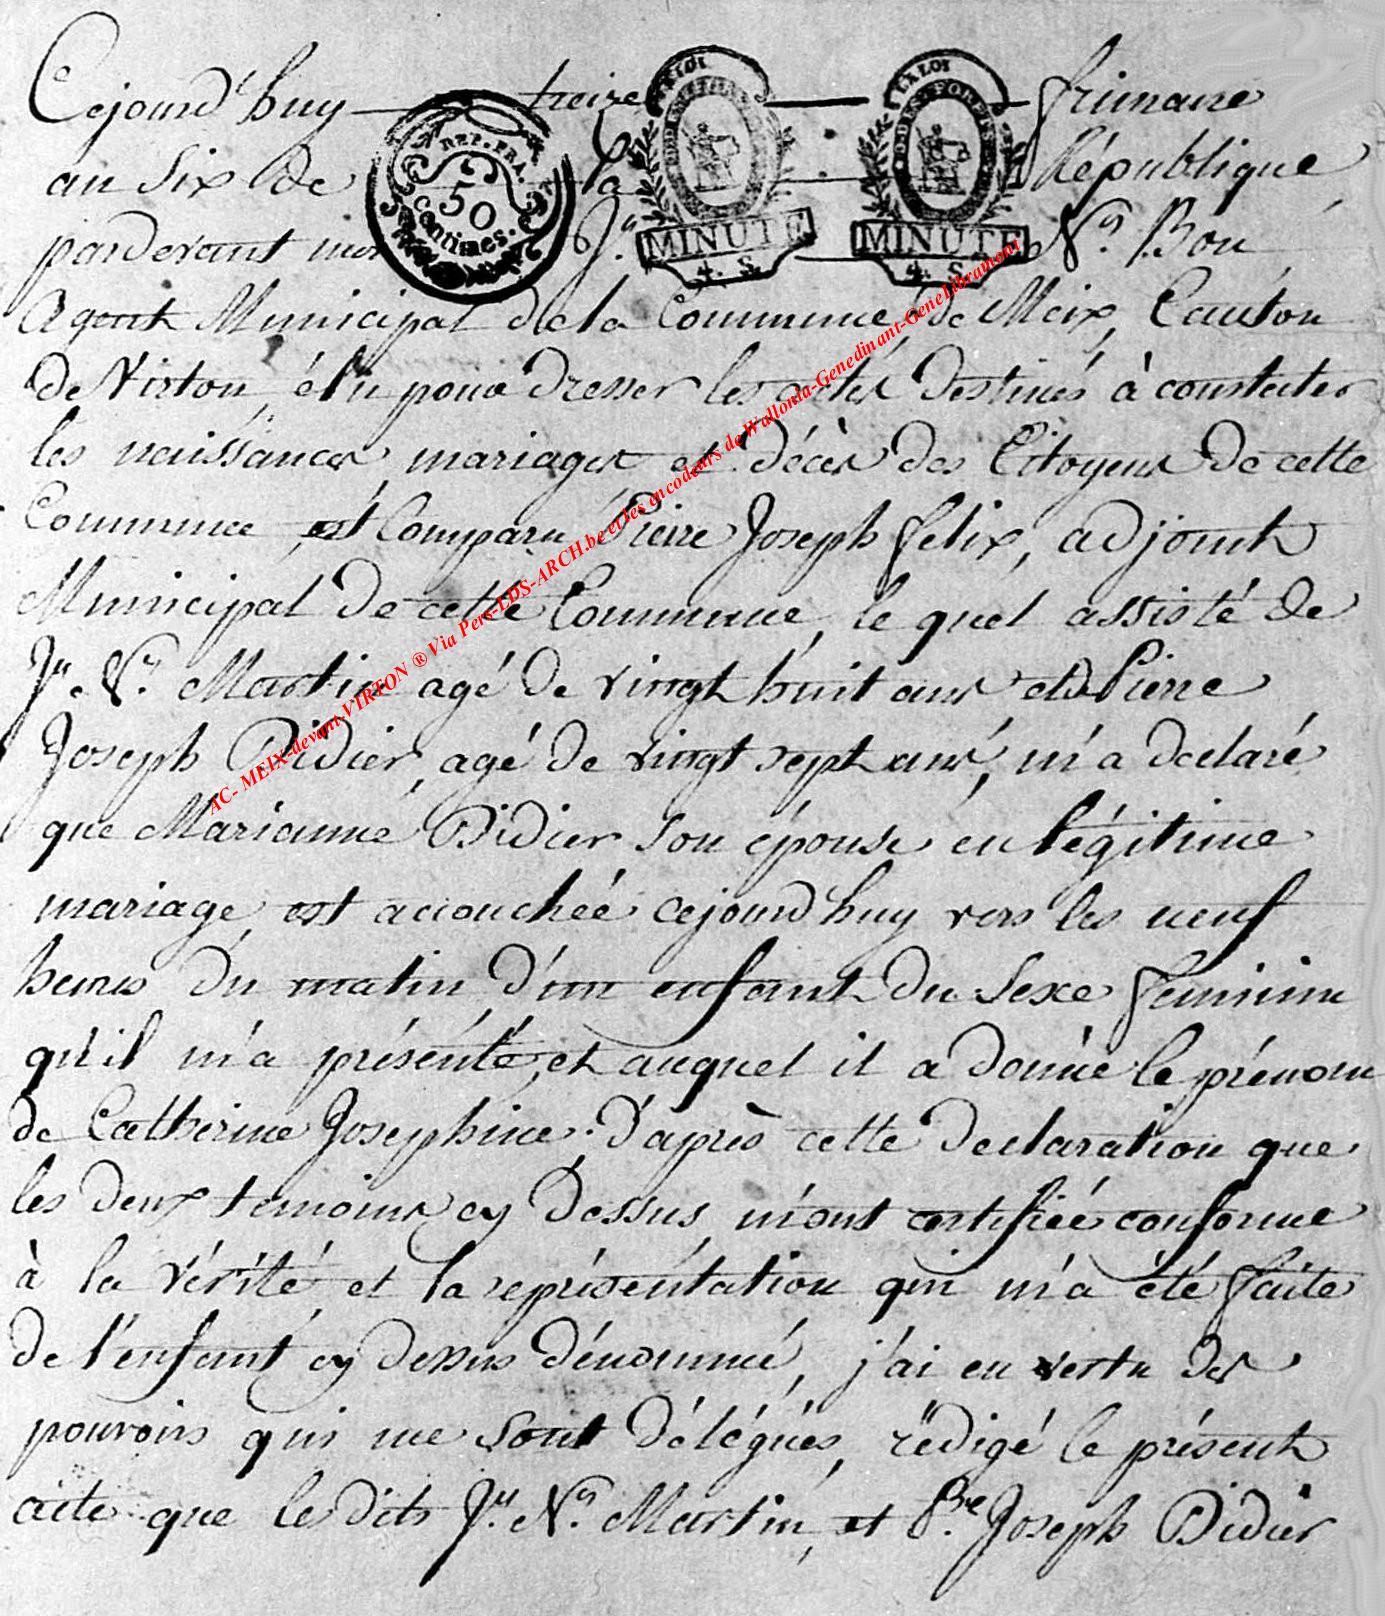 Cejourd'huy treize frimaire
an six de la République
pardevant moi Jn Ns Bon
Agent Municipal de la Commune de Meix, Canton
de Virton, élu pour dresser les actes destinés à constater
les naissances, mariages et décès des Citoyens de cette
Commune, est Comparu Pierre Joseph felix, adjoint
Municipal de cette Commune, le quel assisté de
Jn Ns Martin agé de vingt huit ans et de Pierre
Joseph Didier, agé de vingt sept ans, m'a declaré
que Marianne Didier son épouse en légitime
mariage est accouchée cejourd'huy vers les neuf
heures du matin d'un enfant du Sexe feminin
qu'il m'a présenté, et auquel il a donné le prénom
de Catherine Josephine; d'après cette declaration que
les deux temoins cy dessus, m'ont certifiée conforme
à la vérité et la représentation qui m'a été faite
de l'enfant cy dessus dénommé, j'ai en vertu des
pouvoirs qui me sont délégués, rédigé le présent
acte que les dits Jn Ns Martin, et Pre Joseph Didier
REP. FRA.
50
centimes.
LA LOI
MINUTE
4. S.
LA LOI
MINUTE
4. S.
AC- MEIX-devant-VIRTON ® Via Pers-LDS-ARCH.be et les encodeurs de Wallonia-Genedinant-GeneLibramont